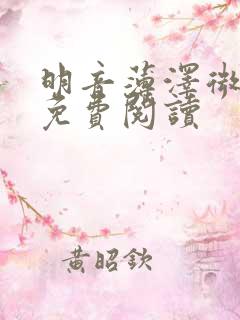 明音薄澤微
免費閱讀
黃昭欽